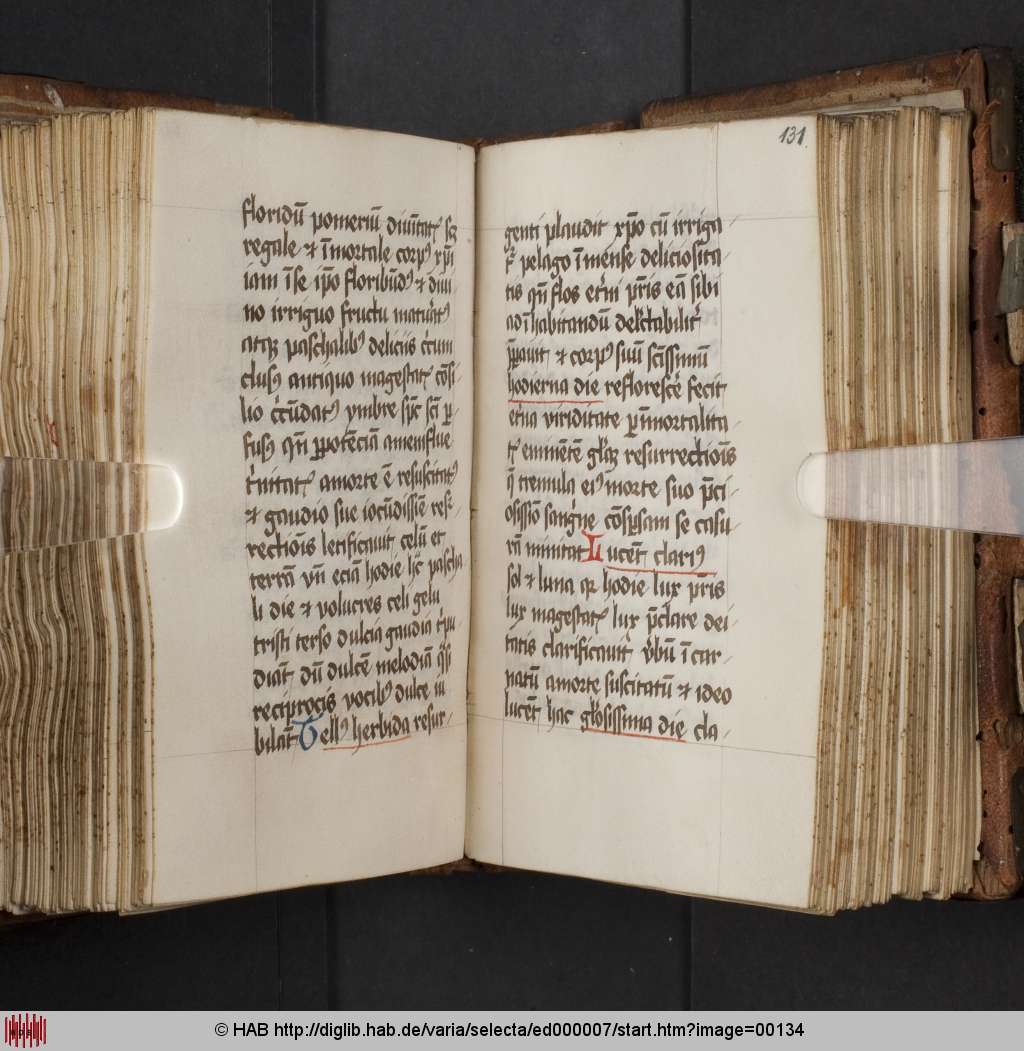 floridū pomeriū diuītatꝭ scꝫ
regale & īmortale corpꝰ xp̄i
iam īse ip̄o floribūdꝰ & diui
no irriguo fructu maturatꝰ
atqꝫ paschalibꝰ deliciis
clusꝰ antiquo magestatꝭ cōsi
lio ymbre sp̄c scī
fusꝰ
amorte ē resuscitatꝰ
& gaudio sue iocūdissīe resr̄
rectiōis letificauit celū et
terrā vn̄ eciā hodie hͨ pascha
li die & volucres celi gelu
tristi terso dulcia gaudia
diāt dū dulcē melodiā
reciprocis vocibꝰ dulce iu
bilāt Tellꝰ herbida resur-
131.
genti plaudit xp̄o cū irriga
pelago īmense deliciosita
tis qn̄ flos et̄ni pr̄is eā sibi
adīhabitandū delectabilit̄
p̄pauit & corpꝰ suū scīssimū
hodierna die refloresce fecit
et̄na viriditate
eminētē resurrectiōis
tremula eiꝰ morte suo p̄ci
osissīo sangne cōsp̄sam se casu
rā minitat Lucēt clariꝰ
sol & luna qꝛ hodie lux pr̄is
lux magestatꝭ lux p̄clare dei
tatis clarificauit v̄bū ī car
natū amorte suscitatū & ideo
lucēt hac glōsissima die cla-
© HAB http://diglib.hab.de/varia/selecta/ed000007/start.htm?image=00134